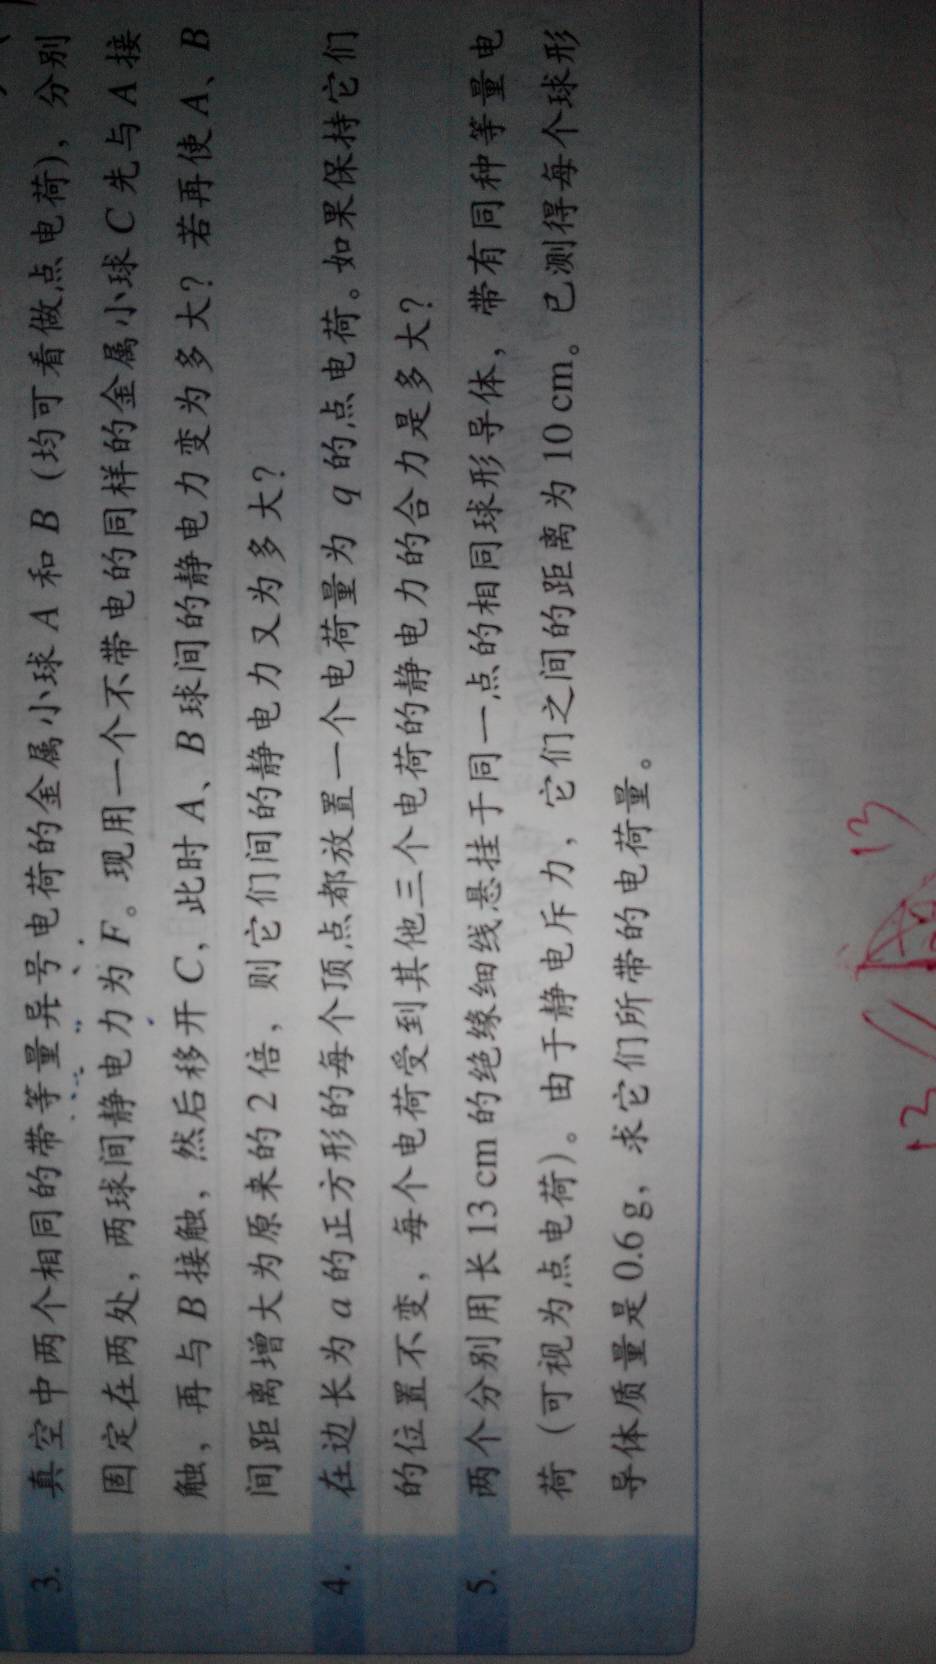 3. 真空中两个相同的带等量异号电荷的金属小球 A 和 B (均可看做点电荷)，分别
固定在两处，两球间静电力为 F。现用一个不带电的同样的金属小球 C 先与 A 接
触，再与 B 接触，然后移开 C，此时 A、B 球间的静电力变为多大？若再使 A、B
间距离增大为原来的 2 倍，则它们间的静电力又为多大？
4. 在边长为 a 的正方形的每个顶点都放置一个电荷量为 q 的点电荷。如果保持它们
的位置不变，每个电荷受到其他三个电荷的静电力的合力是多大？
5. 两个分别用长 13 cm 的绝缘细线悬挂于同一点的相同球形导体，带有同种等量电
荷（可视为点电荷）。由于静电斥力，它们之间的距离为 10 cm。已测得每个球形
导体质量是 0.6 g，求它们所带的电荷量。
13
13